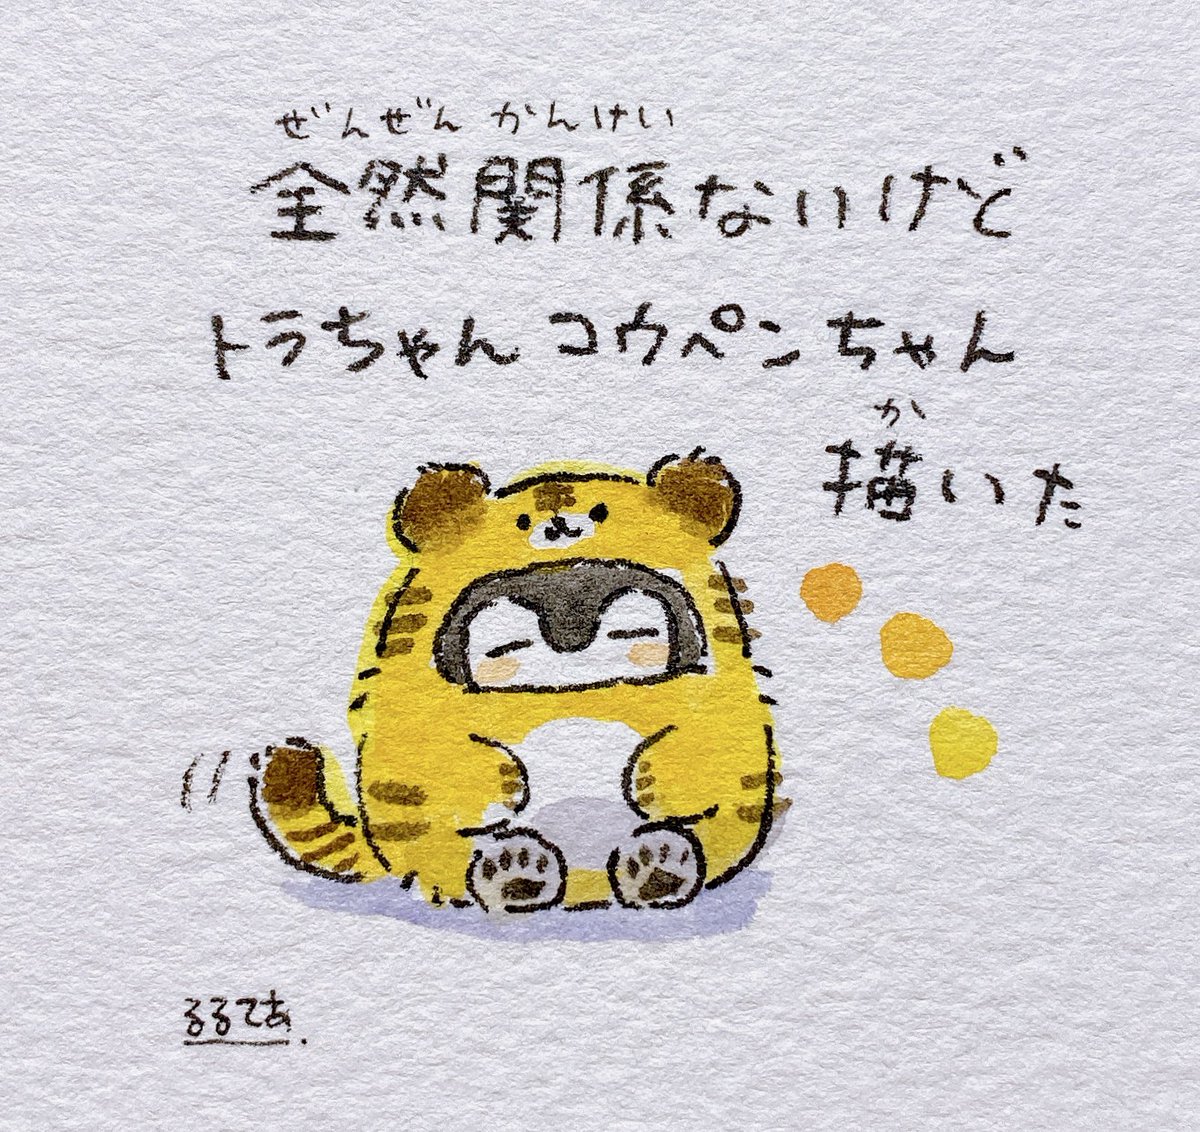 ぜんぜん かんけい
全然関係ないけど
トラちゃんコウペンちゃん
か
描いた
るるてあ.